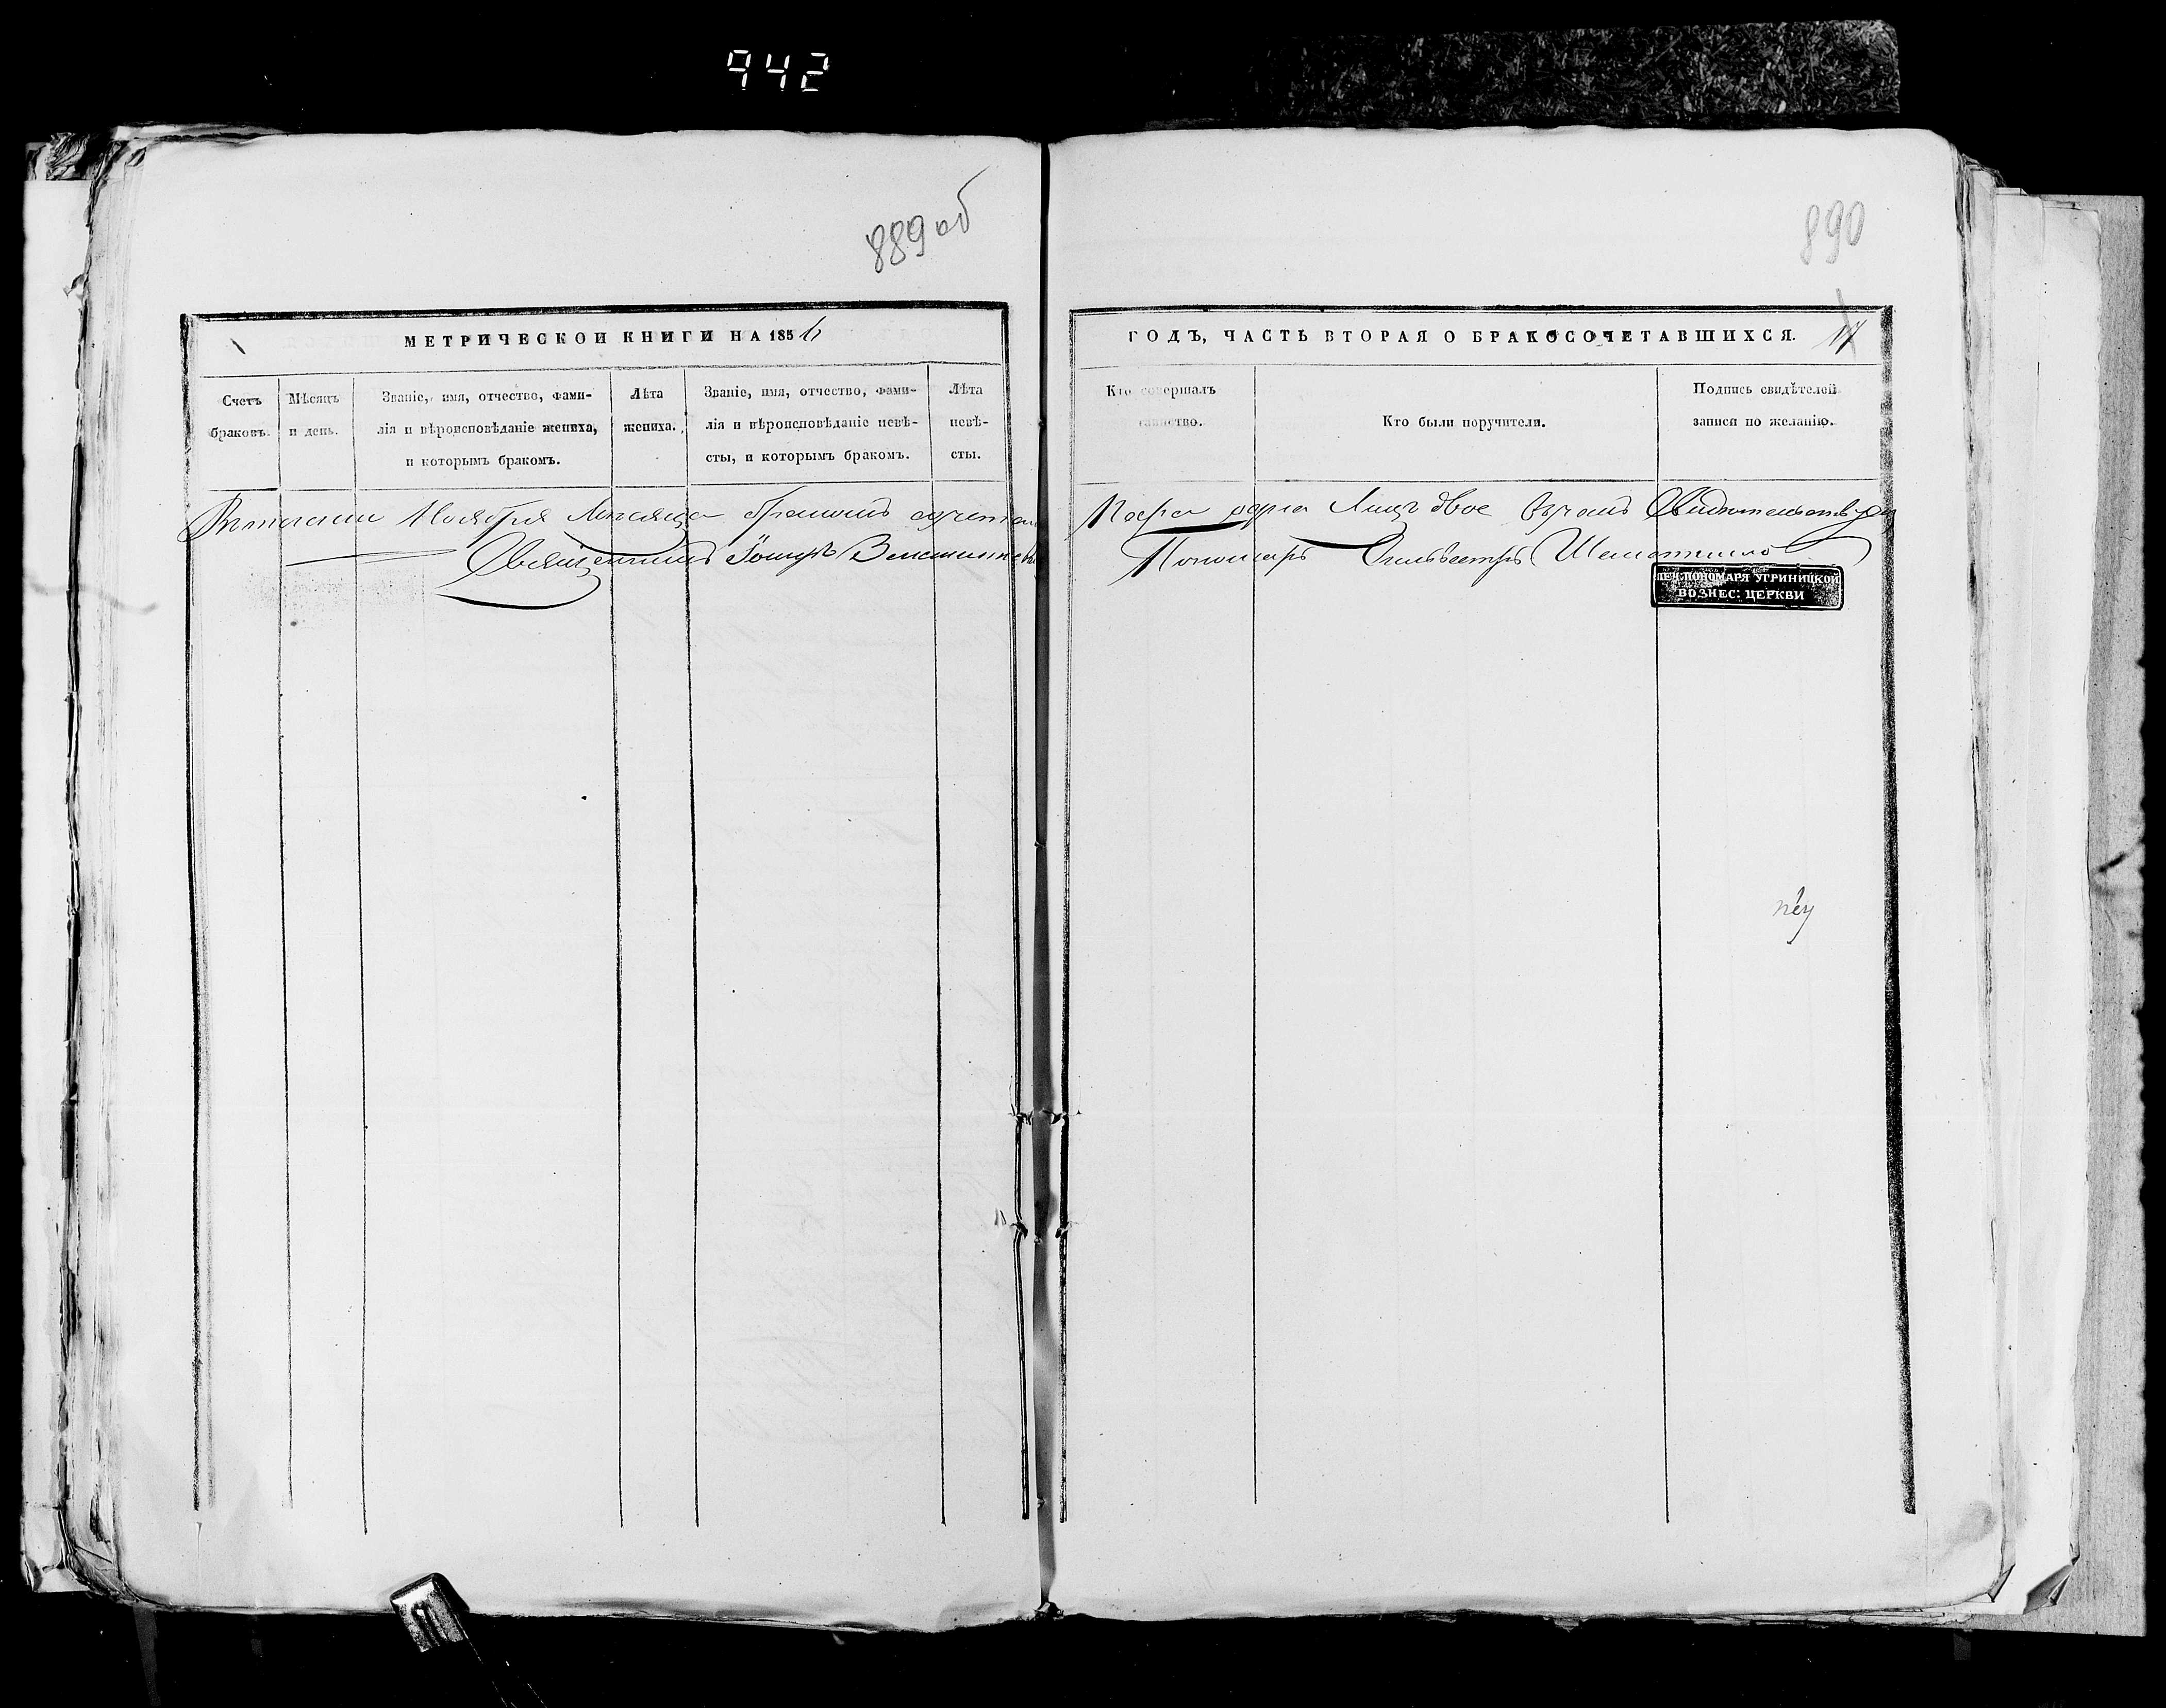 942
889 об
МЕТРИЧЕСКОЙ КНИГИ НА 1856
Счетъ браковъ.
Мѣсяцъ и день.
Званіе, имя, отчество, фами-
лія и вѣроисповѣданіе жениха,
и которымъ бракомъ.
Лѣта жениха.
Званіе, имя, отчество, фами-
лія и вѣроисповѣданіе невѣ-
сты, и которымъ бракомъ.
Лѣта невѣ-
сты.
Ноября Мѣсяца
Священникъ Іоаннъ
890
ГОДЪ, ЧАСТЬ ВТОРАЯ О БРАКОСОЧЕТАВШИХСЯ. 17
Кто совершалъ
таинство.
Кто были поручители.
Подпись свидѣтелей
записи по желанію.
Лицъ двое Свидетельствуемъ
Пономарь Сильвестръ
ПЕЧ. ПОНОМАРЯ УГРИНИЦКОЙ
ВОЗНЕС: ЦЕРКВИ